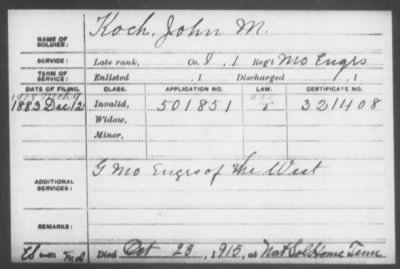 NAME OF SOLDIER: Koch, John M.
SERVICE: Late rank, Co. I, 1 Reg't Mo Engrs
TERM OF SERVICE: Enlisted , 1 Discharged , 1
DATE OF FILING. CLASS. APPLICATION NO. LAW. CERTIFICATE NO.
1883 Dec 12 Invalid, 501851 321408
Widow,
Minor,
ADDITIONAL SERVICES: G Mo Engrs of the West
REMARKS:
Died Oct 23, 1915, at Nat Sol Home Tenn